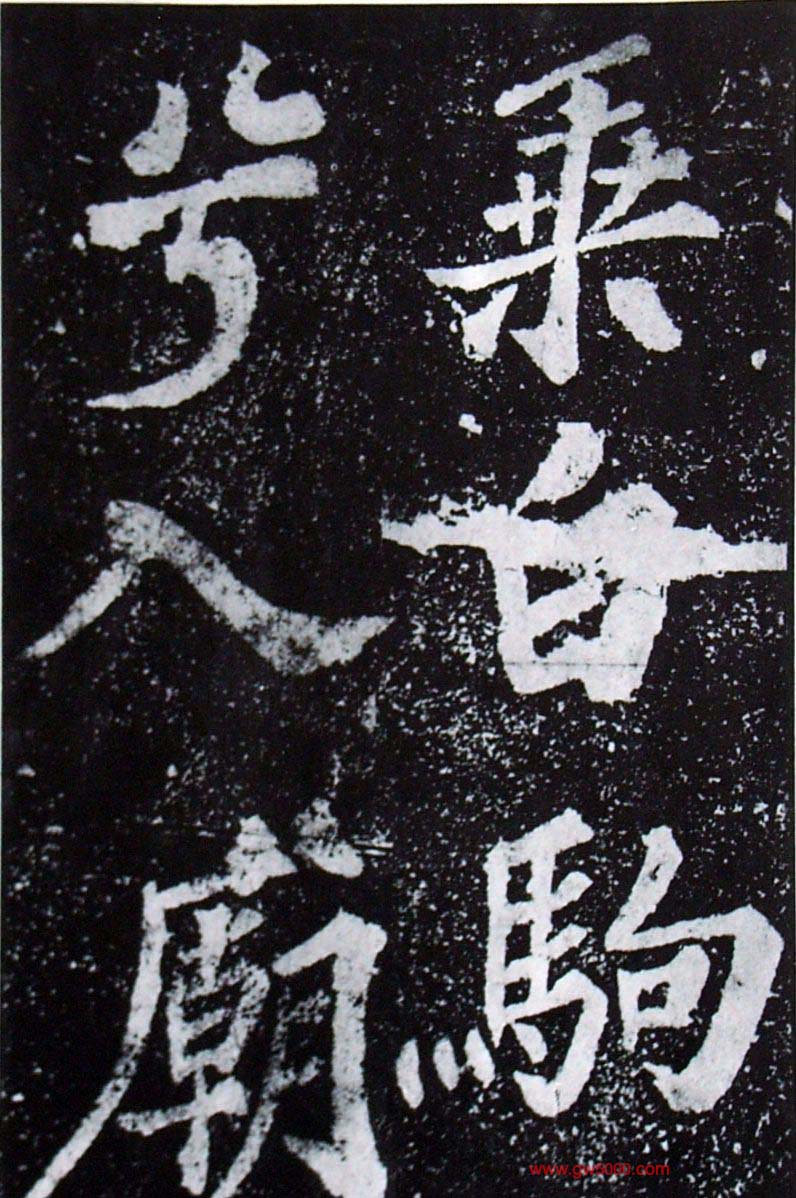 乗白駒
兮入廟
www.gw8000.com